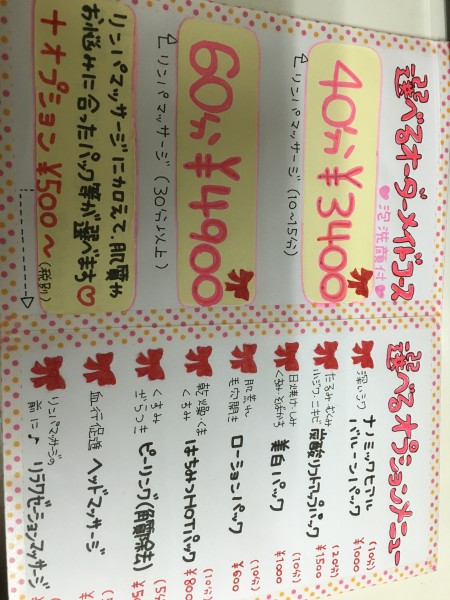 選べるオーダーメイドコース
♥泡洗顔付♥
40分 ¥3400
リンパマッサージ(10〜15分)
60分 ¥4900
リンパマッサージ(30分以上)
リンパマッサージに加えて肌質や
お悩みに合ったパック等が選べます♡
+オプション ¥500〜(税別)
選べるオプションメニュー
深いシワ
ナノミックヒアル
バルーンパック
(10分)
¥1000
たるみ・むくみ
(20分)
¥1500
日焼け・しみ
美白パック
(10分)
¥1000
肌荒れ
毛穴開き
ローションパック
(10分)
¥600
乾燥・くま
くすみ
はちみつHOTパック
(10分)
¥800
くすみ
ざらつき
ピーリング(角質除去)
血行促進
ヘッドマッサージ
リンパマッサージの
前に♪
リラクゼーションマッサージ